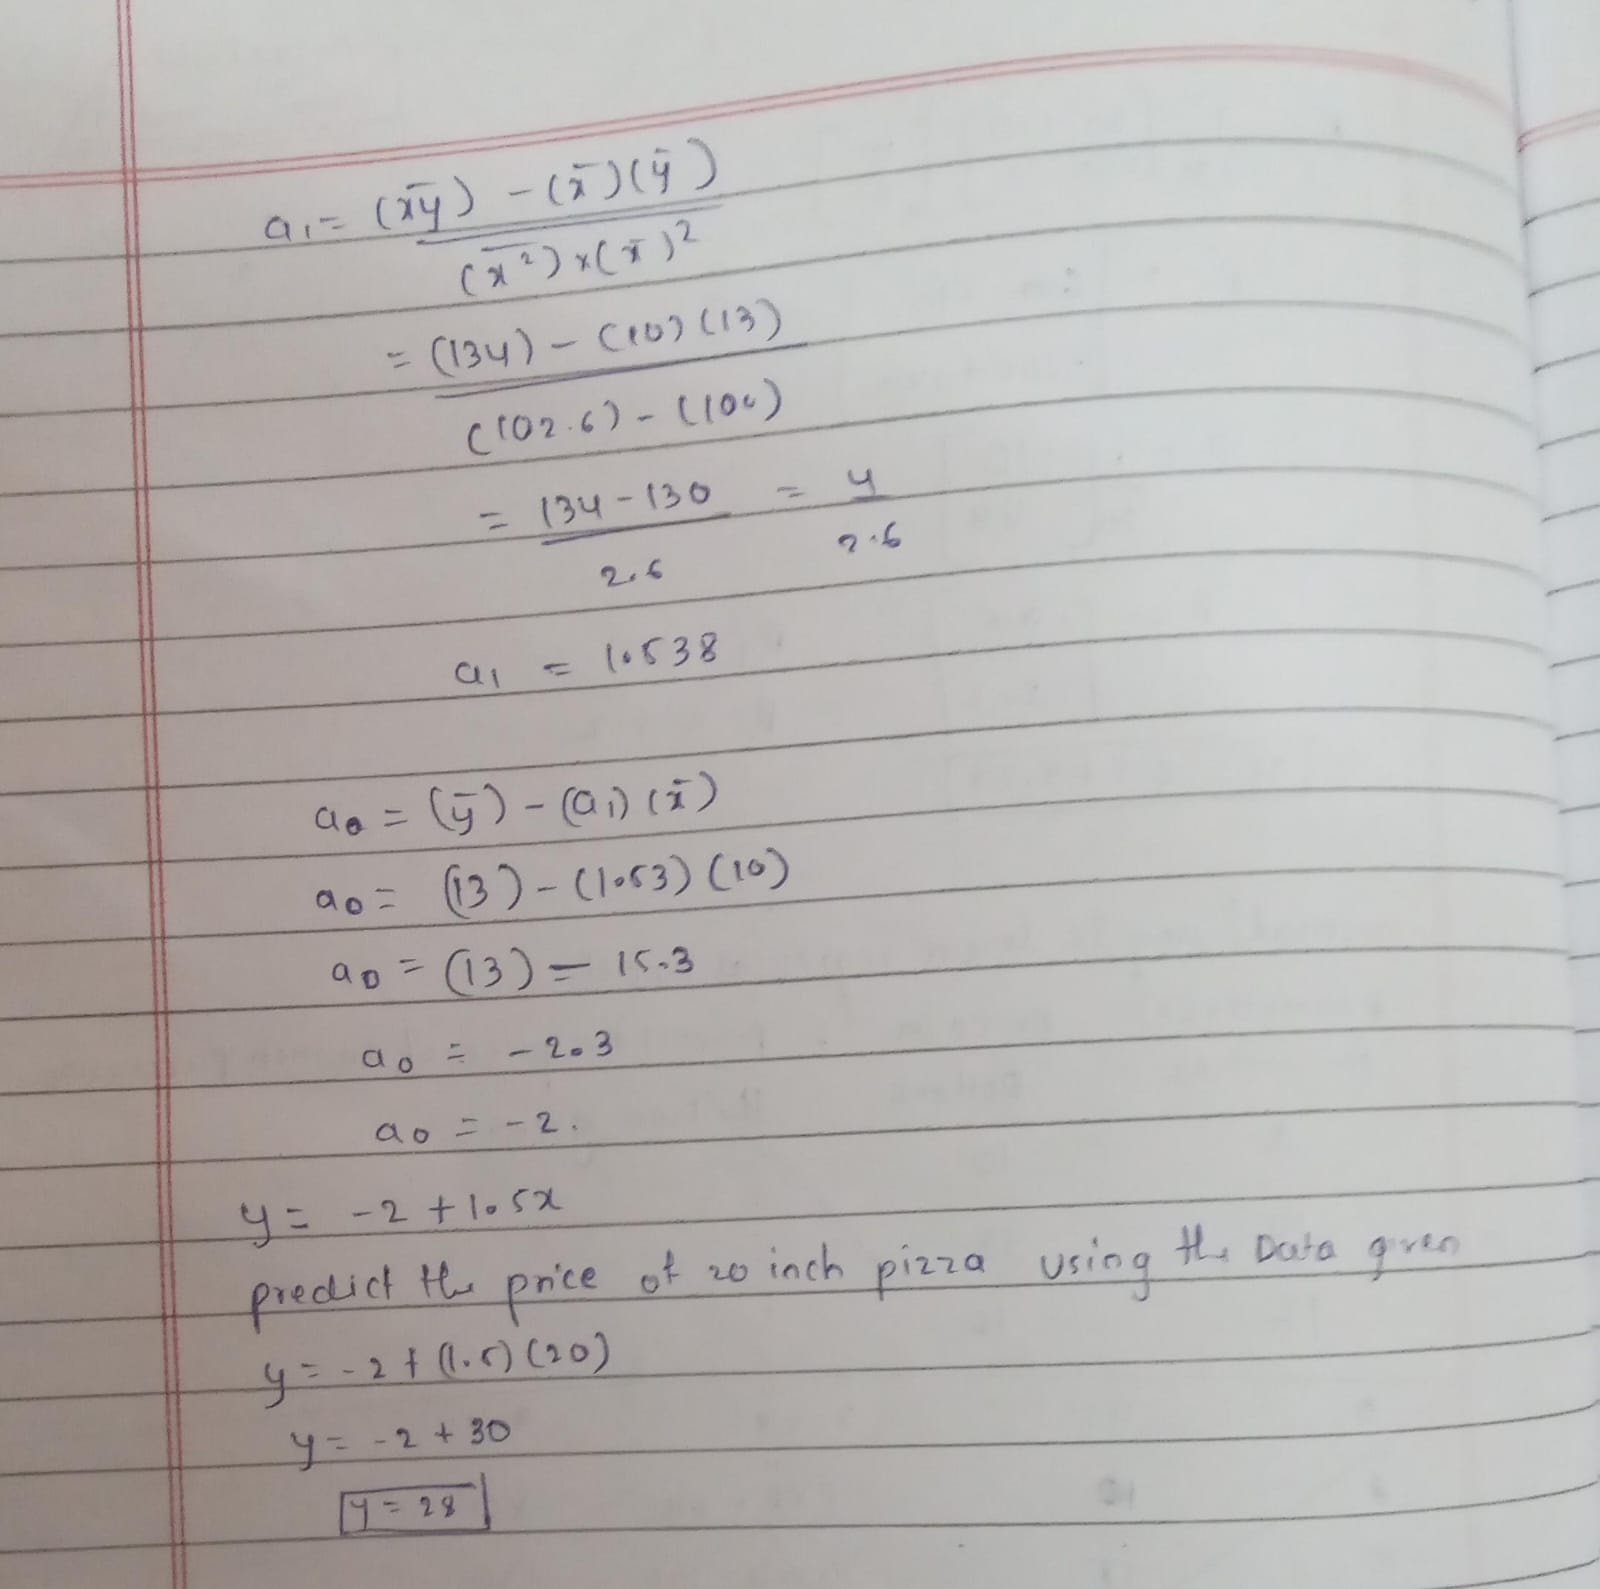 a₁ = (x̄ȳ) - (x̄)(ȳ)
(x̄²) × (x̄)²
= (134) - (10)(13)
(102.6) - (100)
= 134 - 130 = 4
2.6 2.6
a₁ = 1.538
a₀ = (ȳ) - (a₁)(x̄)
a₀ = (13) - (1.53)(10)
a₀ = (13) - 15.3
a₀ = -2.3
a₀ = -2.
y = -2 + 1.5x
predict the price of 20 inch pizza using the Data given
y = -2 + (1.5)(20)
y = -2 + 30
y = 28